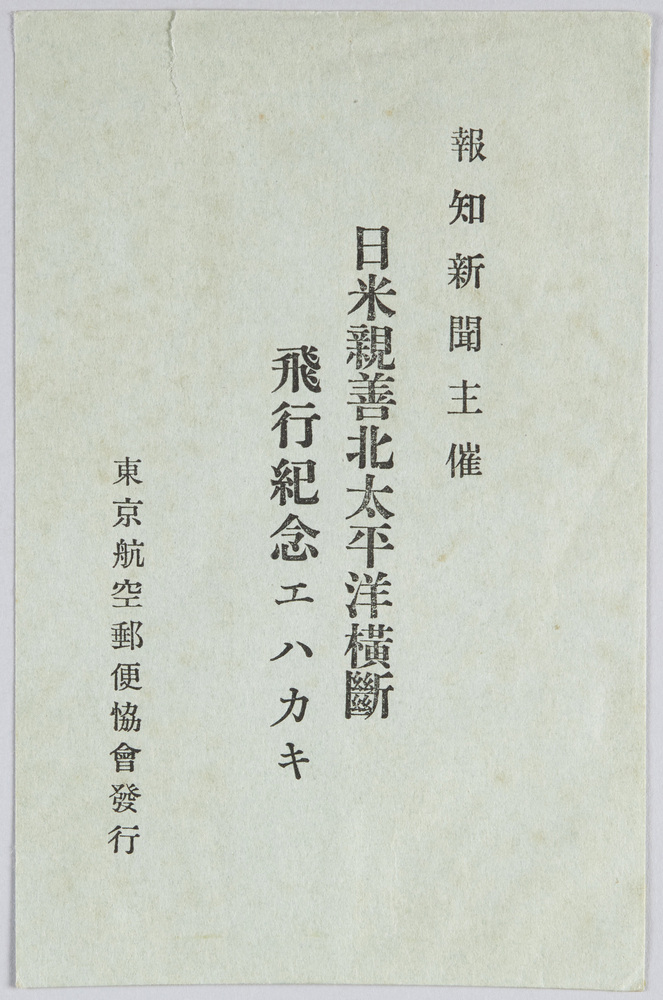 報知新聞主催
日米親善北太平洋橫斷
飛行紀念エハカキ
東京航空郵便恊會發行